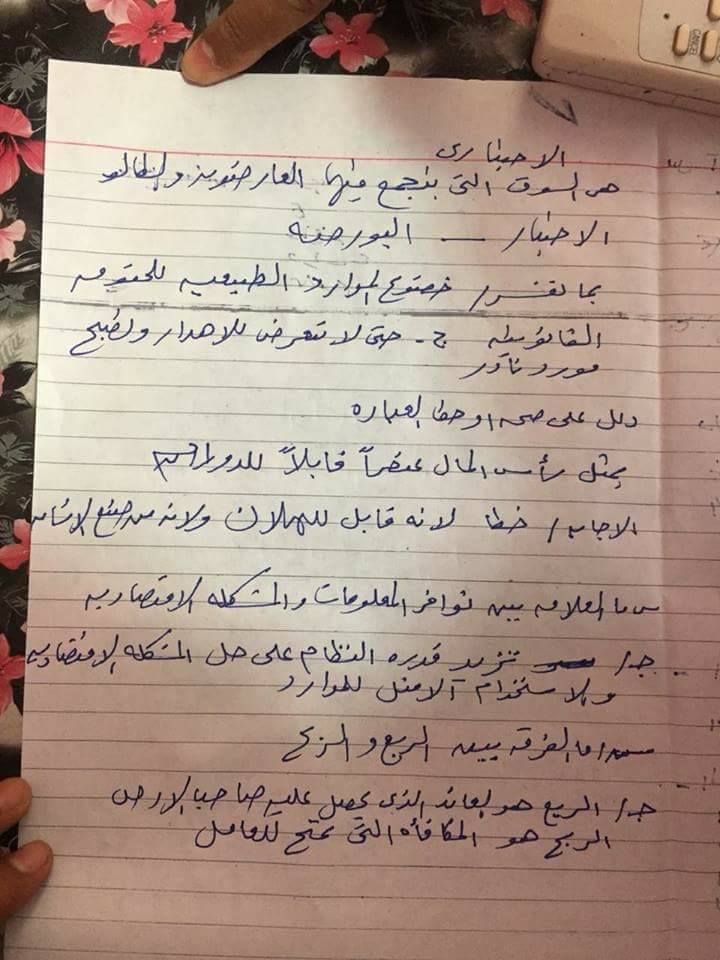 الاختبارى
هى السوق التى يتجمع فيها العارضوين والطالو
الاختبار — البورصه
بما تفسر / خضوع الموارد الطبيعيه للحقوق
القانونيه ج- حتى لا تتعرض للاهدار ولتصبح
مورد نادر
دلل على صحه او خطا العباره
يمثل رأس المال عنصراً قابلاً للدوام
الاجابه / خطا لانه قابل للهلاك ولانه من صنع الانسان
س ما العلاقه بين توافر المعلومات والمشكله الاقتصاديه
جـ/ تزيد قدره النظام على حل المشكله الاقتصاديه
والاستخدام الامثل للموارد
س ما الفرق بين الريع والربح
جـ/ الريع هو العائد الذى يحصل عليه صاحب الارض
الربح هو المكافأه التى تمنح للعامل
CANCEL